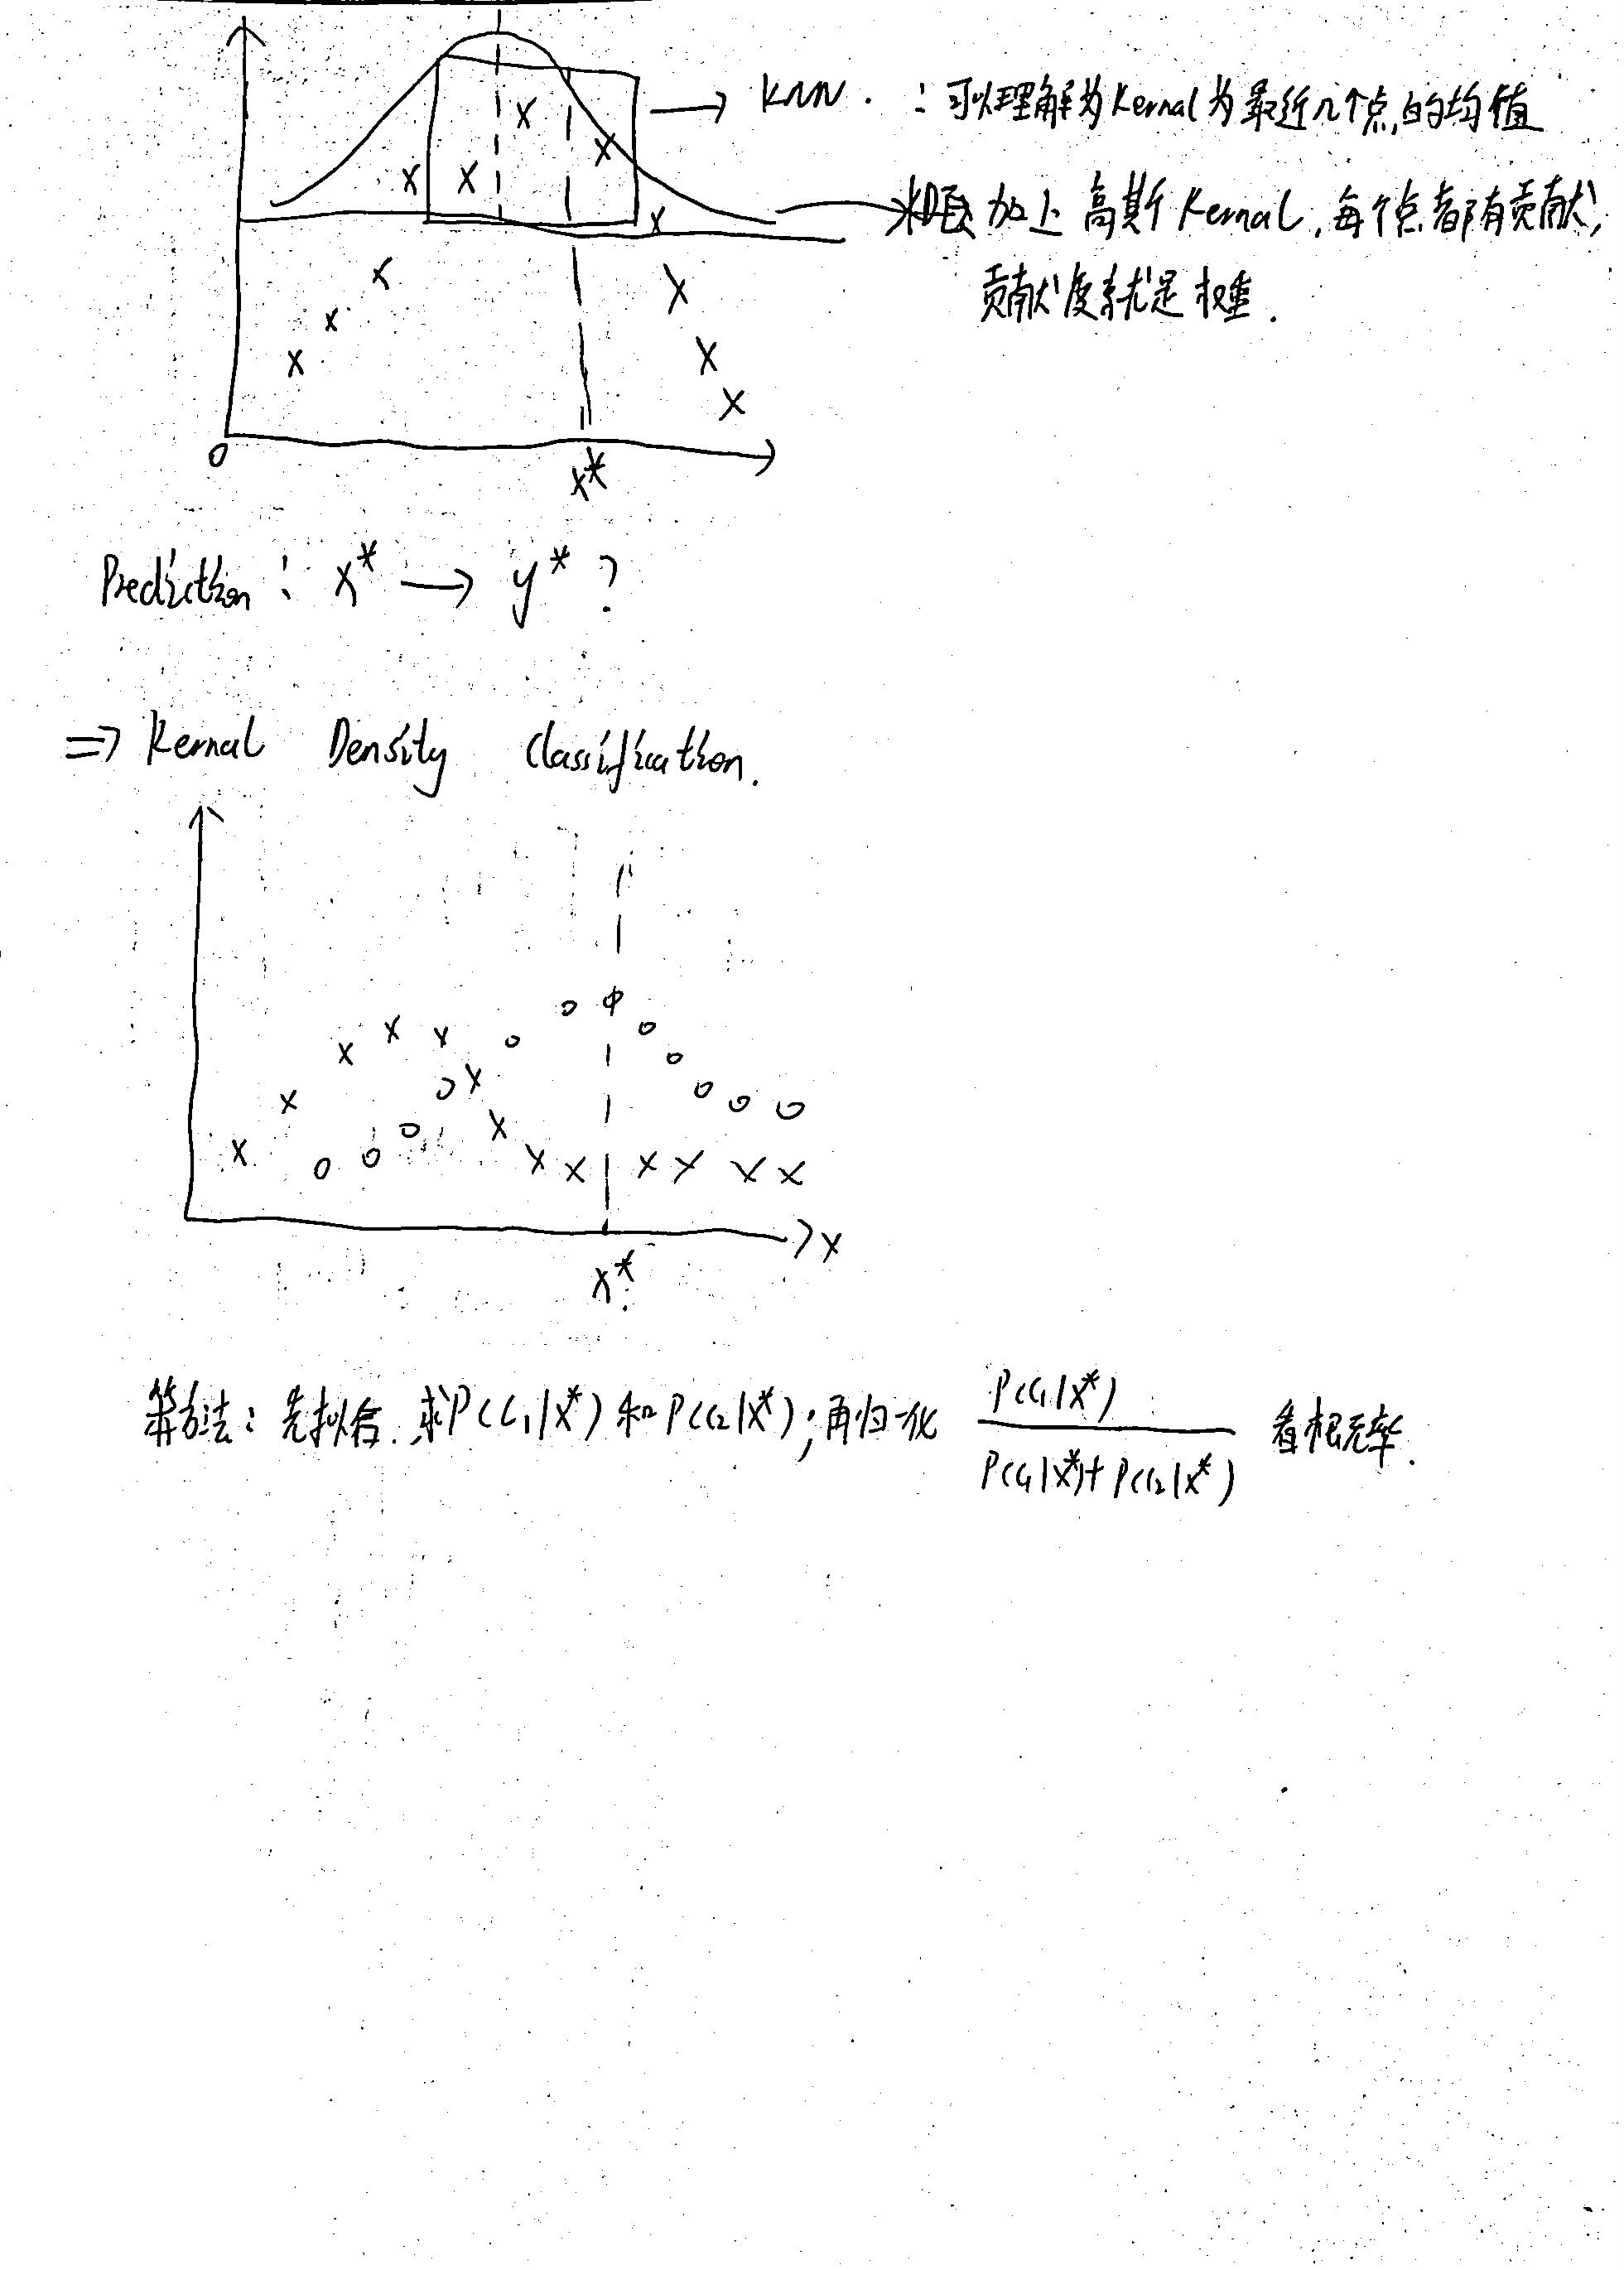 → KNN. : 可以理解为Kernal为最近几个点的均值
加上高斯Kernal,每个点都有贡献,
贡献度就是权重.
0
x*
Prediction: x* → y* ?
⇒ Kernal Density Classification.
x
x*
算方法: 先拟合.求P(C₁|x*)和P(C₂|x*);再归一化 P(C₁|x*) / P(C₁|x*)+P(C₂|x*) 看概率.